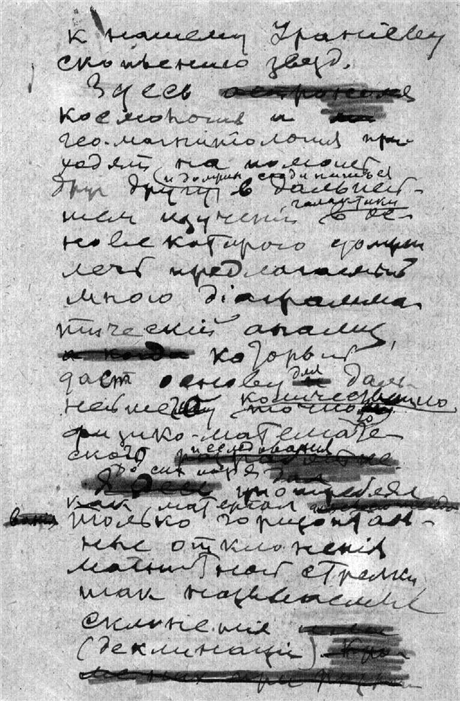 к нашему
скопленію звезд.
Здесь
космологія и
геомагнитологія при-
ходят на помощь
(и должны
друг другу в дальней-
галактики
шем изучении в ос-
нове которого должен
лечь предлагаемый
мною діаграмма-
тический анализ,
который
даст основу для даль-
нейшего количественно
точного
физико-математиче-
ского изследования
До сих пор я
употреблял
как материал
только горизонталь-
ные отклоненія
магнитной стрелки
так называемые
склоненія
(деклинаціи)